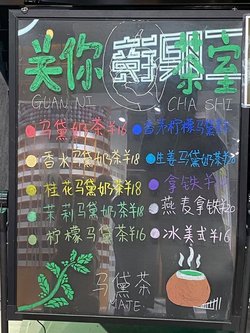 关你 茶室
GUAN NI CHA SHI
马黛奶茶¥16
香水马黛奶茶¥18
生姜马黛奶茶¥18
桂花马黛奶茶¥18
拿铁¥
茉莉马黛奶茶¥18
燕麦拿铁¥20
柠檬马黛茶¥16
冰美式¥16
马黛茶
MATE